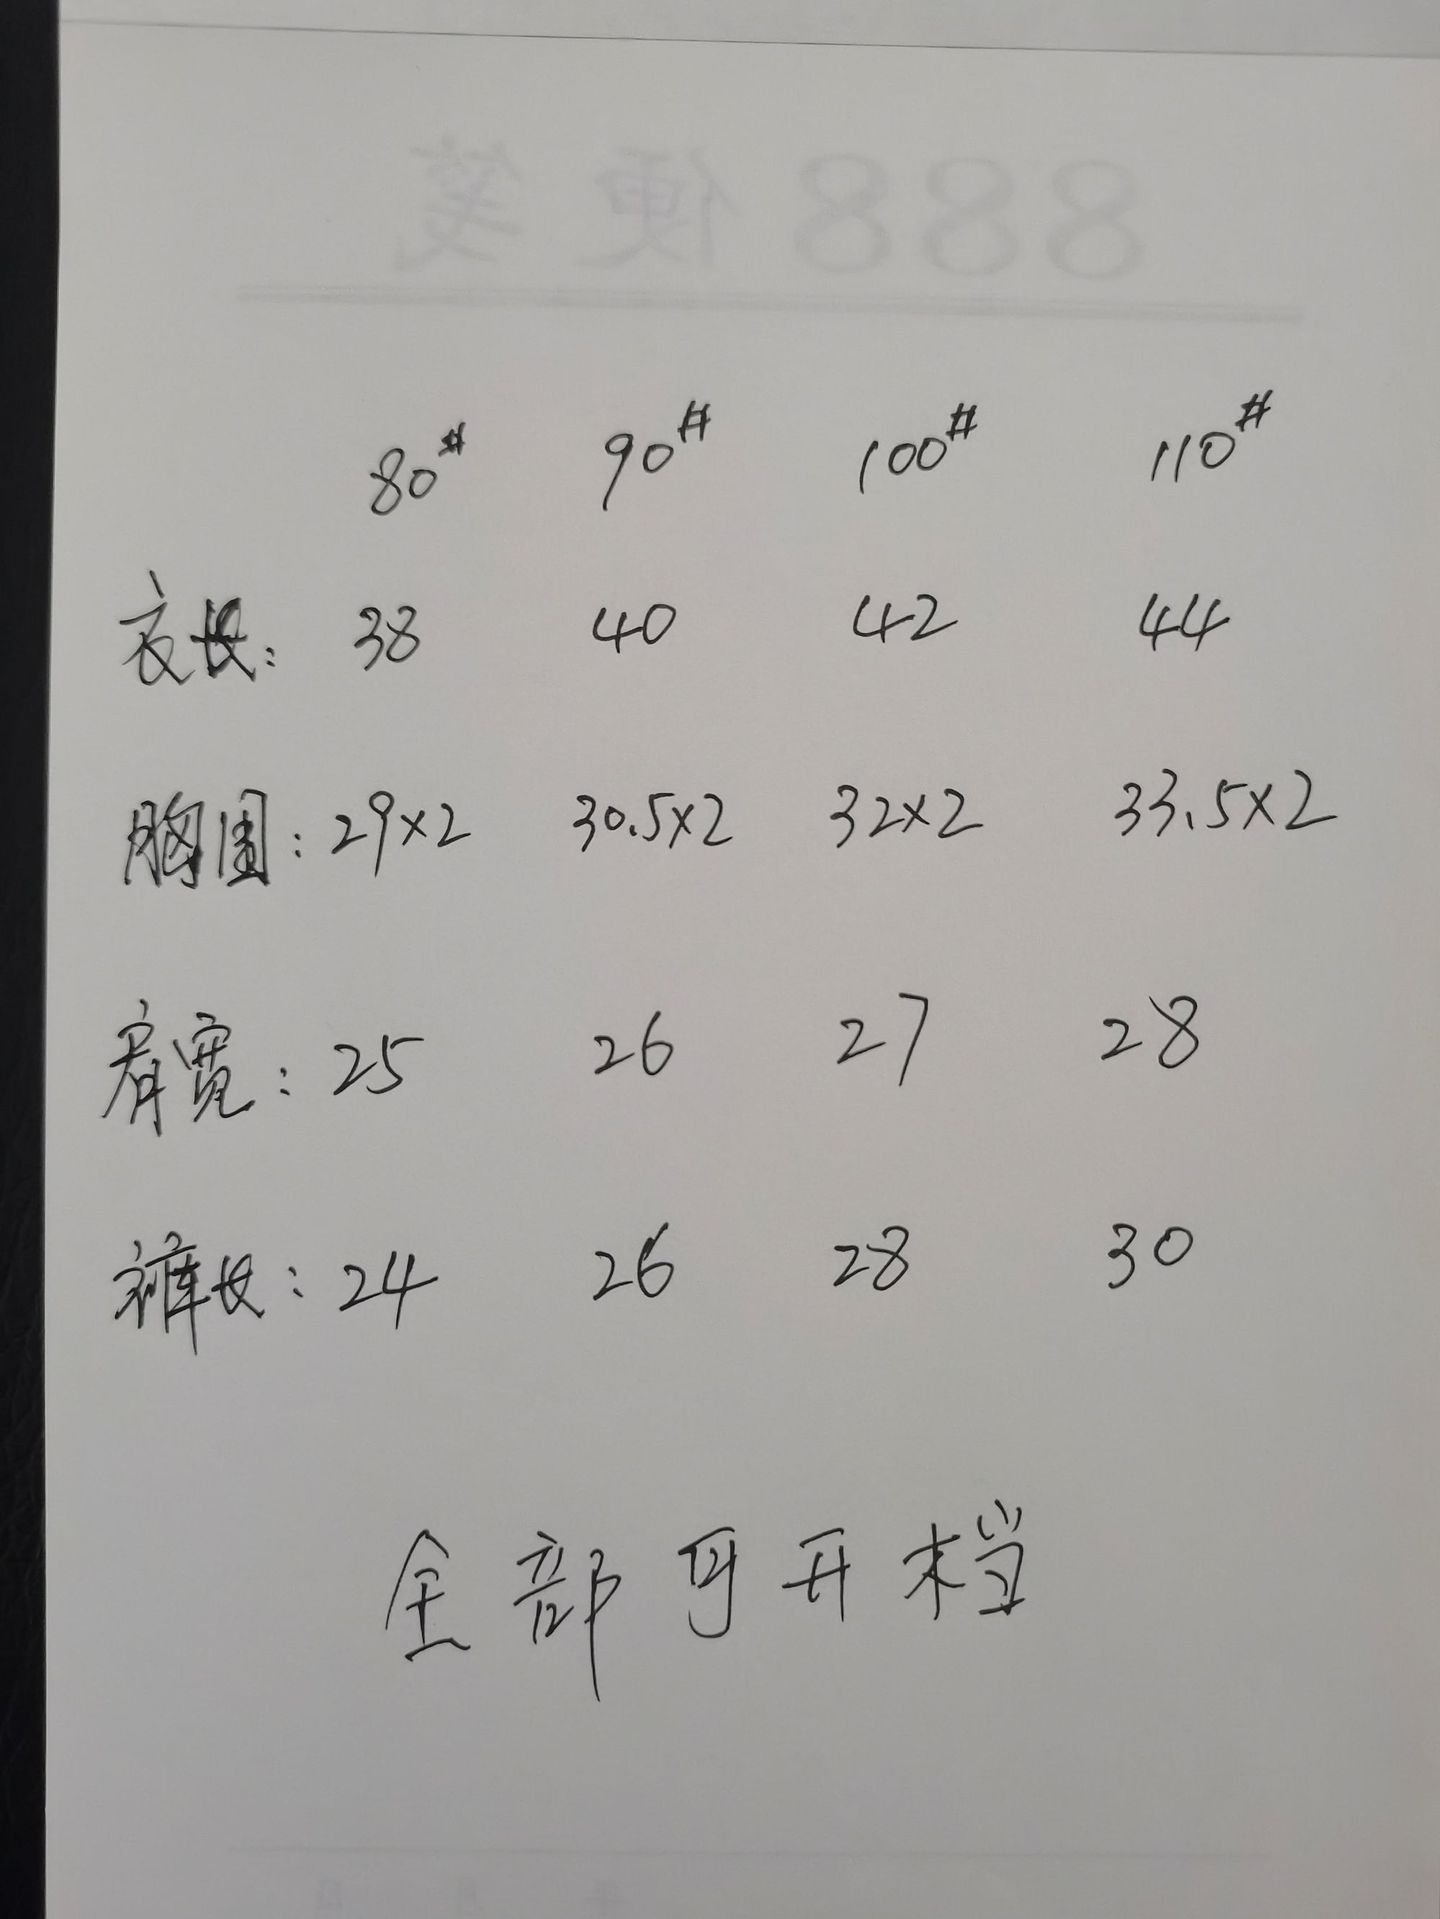 888便笺
80# 90# 100# 110#
衣长: 38 40 42 44
胸围: 29×2 30.5×2 32×2 33.5×2
肩宽: 25 26 27 28
裤长: 24 26 28 30
全部可开档
年 月 日